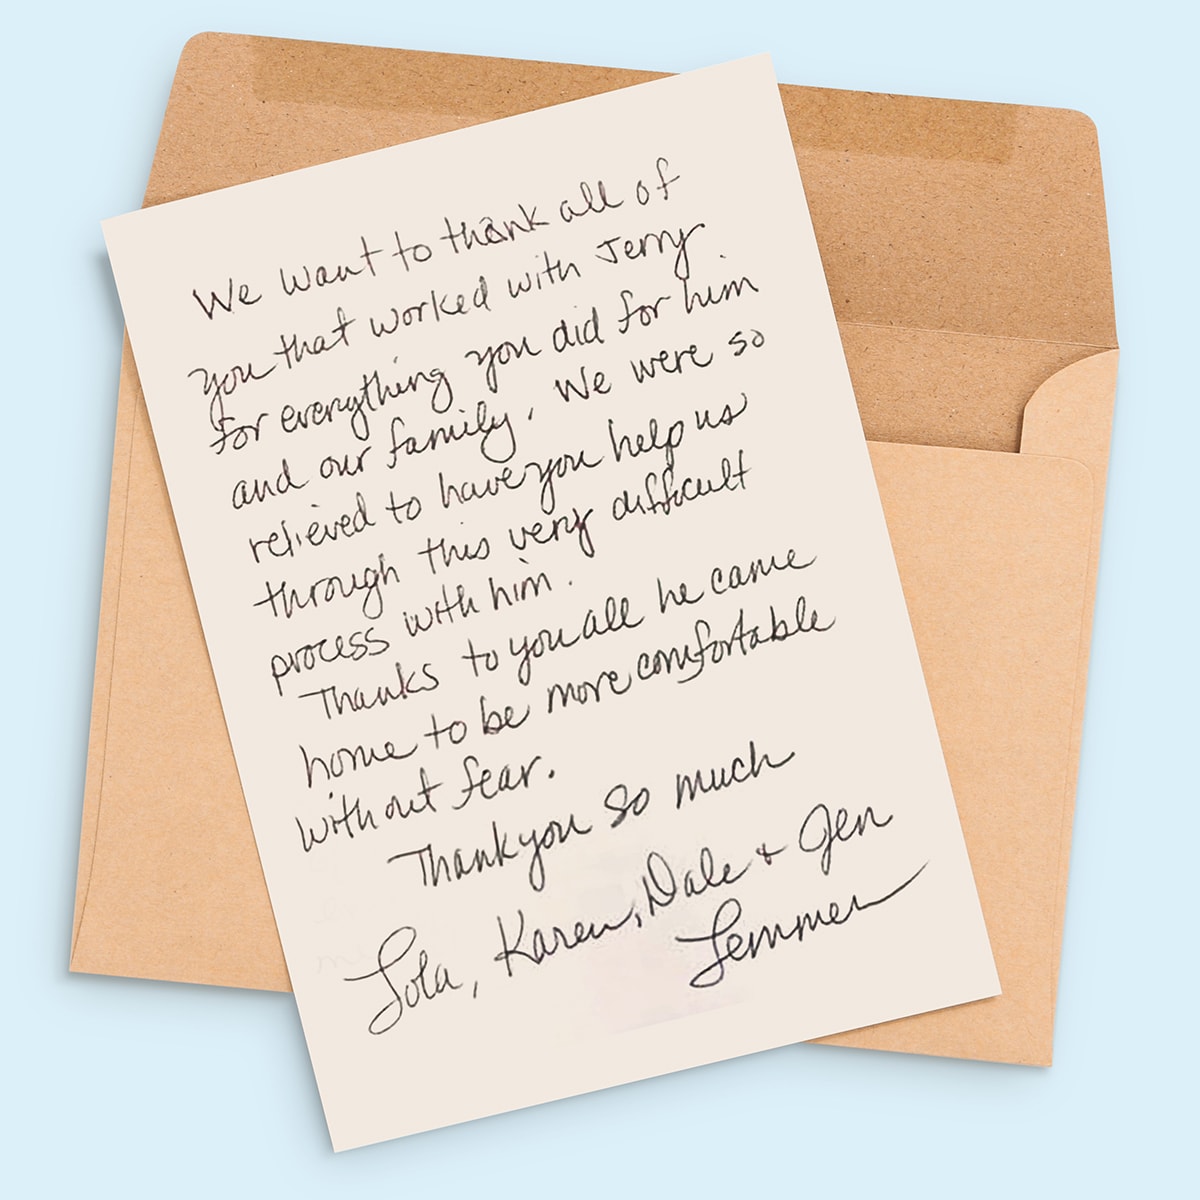 We want to thank all of
you that worked with Jerry
for everything you did for him
and our family. We were so
relieved to have you help us
through this very difficult
process with him.
Thanks to you all he came
home to be more comfortable
without fear.
Thank you so much
Lola, Karen, Dale + Jen
Lemmen